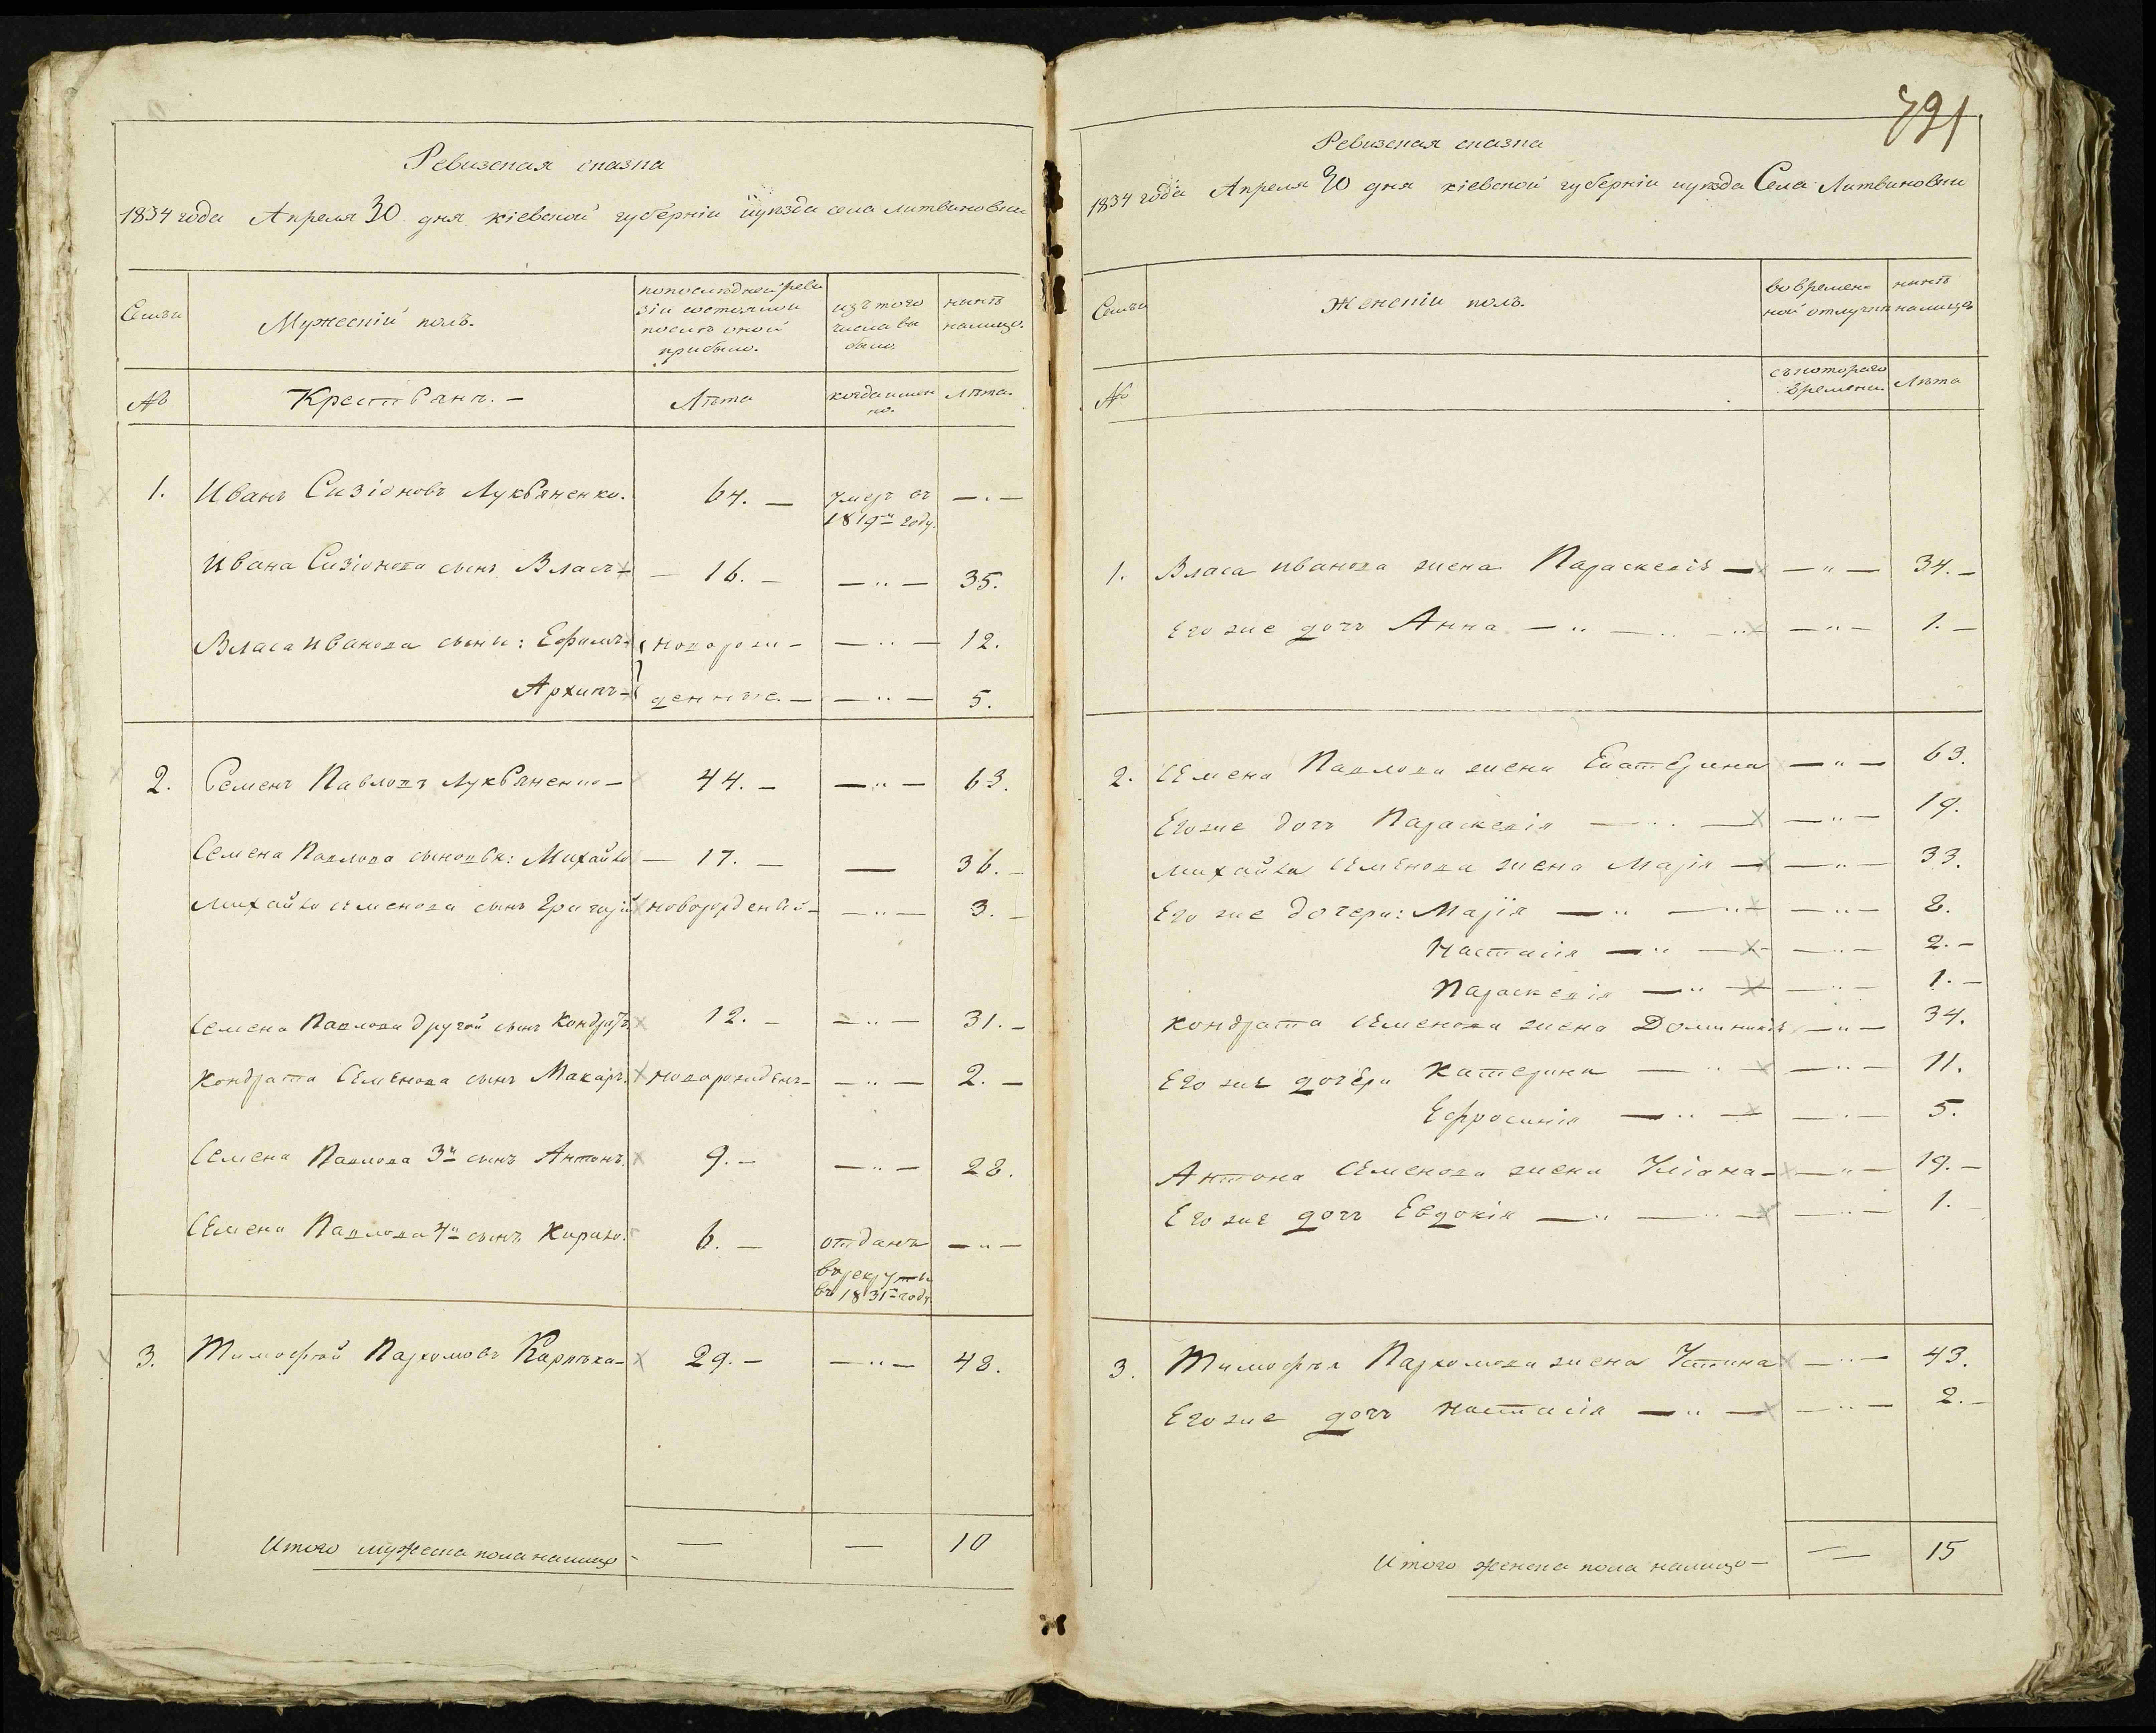 Ревизская сказка
1834 года Апреля 30 дня кіевской губерніи иуезда села литвиновки
Семьи
Мужескій полъ.
попоследней реви
зіи состояло и
после оной
прибыло.
изъ того
числа вы
было.
ныне
налицо.
№
Крестьянъ. —
Лѣта
когда имен
но.
Лѣта.
1. Иванъ Сизіоновъ Лукьяненко. 64. — умеръ въ — . —
1819м году.
Ивана Сизіонова сынъ Власъ — 16. — — „ — 35.
Власа Иванова сыны: Ефимъ новорож — — „ — 12.
Архипъ — денные. — — „ — 5.
2. Семенъ Павловъ Лукьяненко — 44. — — „ — 63.
Семена Павлова сыновья: Михайло — 17. — — 36. —
Михайла семенова сынъ Григорій новорожденый — — „ — 3. —
Семена Павлова другой сынъ Кондратъ 12. — — „ — 31. —
Кондрата Семенова сынъ Макаръ. новорожденъ — — „ — 2. —
Семена Павлова 3й сынъ Антонъ. 9. — — „ — 28.
Семена Павлова 4й сынъ Кирило. 6. — отданъ — „ —
в рекруты
въ 1831м году.
3. Тимофей Пархомовъ Карпека — 29. — — „ — 48.
Итого мужеска пола налицо — — — 10
791
Ревизская сказка
1834 года Апреля 30 дня кіевской губерніи иуезда Села Литвиновки
Семьи
Женскій полъ.
во времен=
ной отлучке
ныне
налицо
№
съ котораго
времени.
Лѣта
1. Власа иванова жена Параскевія — — „ — 34. —
Его же дочь Анна — „ — „ — „ — „ — 1. —
2. Семена Павлова жена Екатерина — „ — 63.
Егоже дочь Параскевія — „ — — „ — 19.
Михайла Семенова жена Марія — — „ — 33.
Его же дочери: Марія — „ — „ — „ — 8.
Настасія — „ — — „ — 2. —
Параскевія — „ — — „ — 1. —
Кондрата Семенова жена Доминикія — „ — 34.
Его же дочери Катерина — „ — — „ — 11.
Ефросинія — „ — — „ — 5.
Антона Семенова жена Уліана — — „ — 19. —
Его же дочь Евдокія — „ — „ — — „ — 1. —
3. Тимофея Пархомова жена Устина — „ — 43.
Егоже дочь Настасія — „ — — „ — 2. —
Итого женска пола налицо — — 15